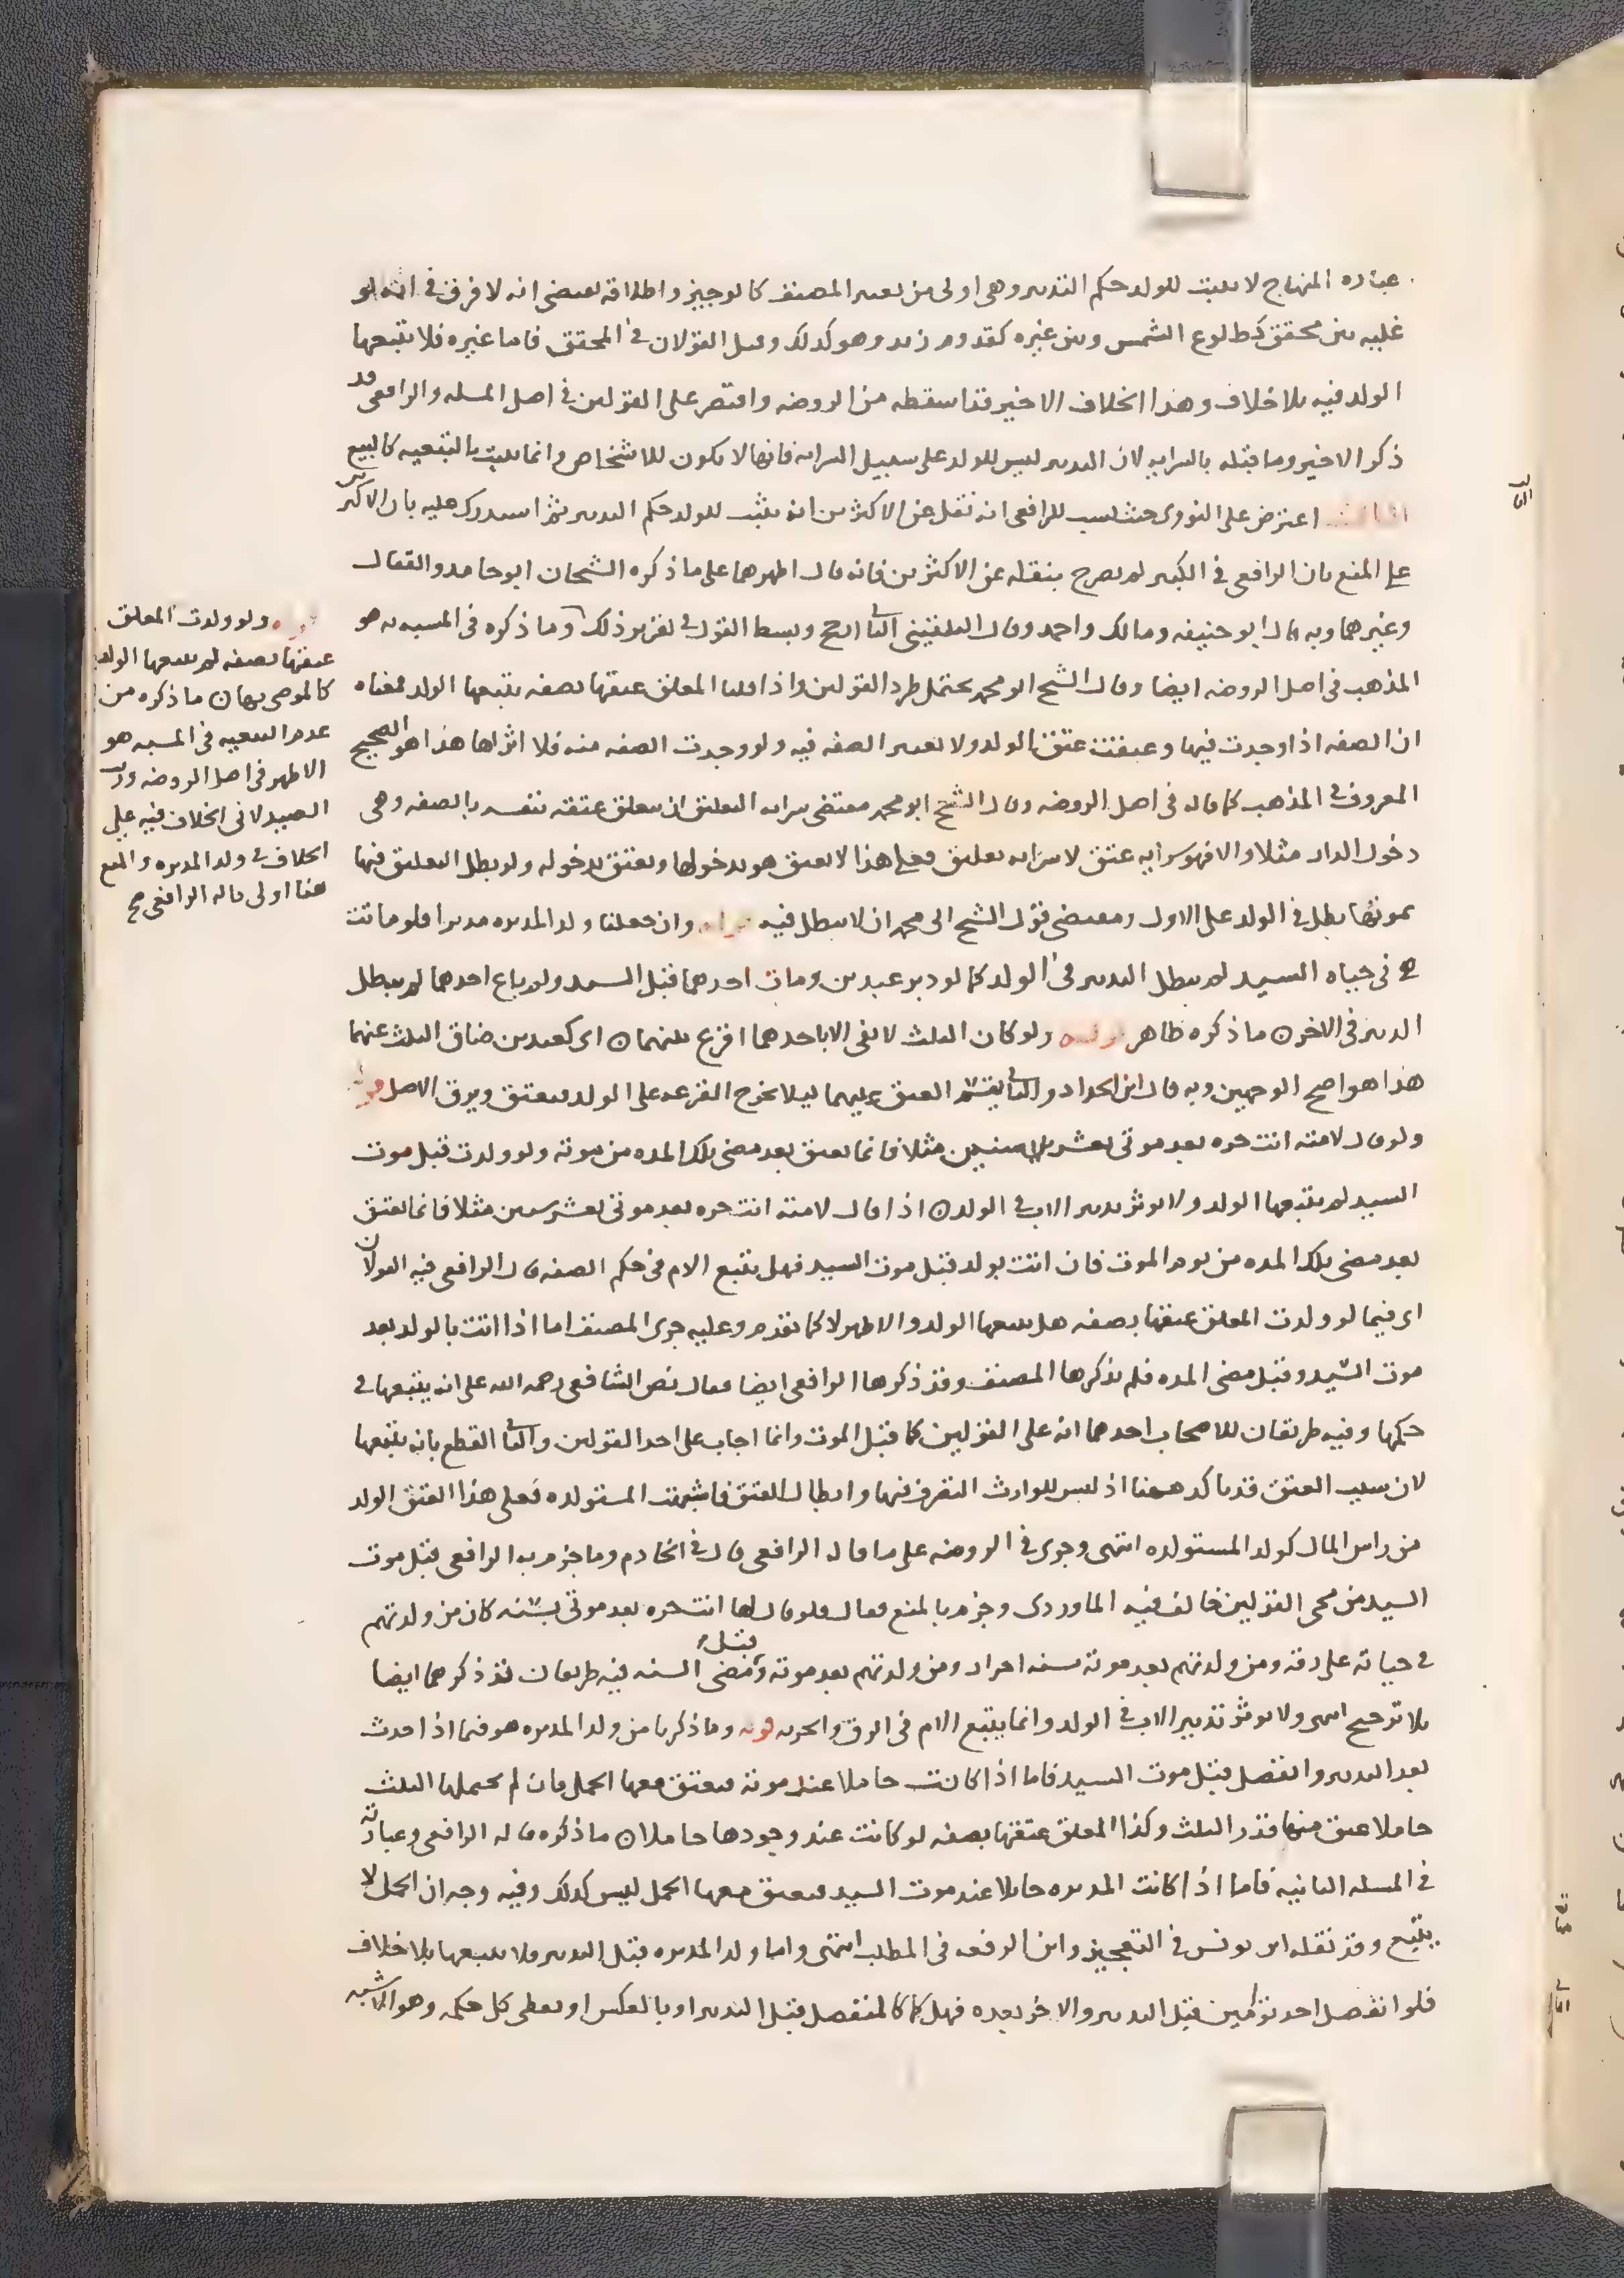 عباره المنهاج لا يثبت للولد حكم التدبير وهي اولى من تعبير المصنف كالوجيز واطلاقه يقتضي انه لا فرق في
غلبيه بين محقق كطلوع الشمس وبين غيره كقدوم زيد وهو كذلك وقيل القولان في المحقق فاما غيره فلا يتبعها
الولد فيه بلا خلاف وهذا الخلاف الاخير قد اسقطه من الروضه واقتصر على القولين في اصل المسله والرافعي قد
ذكر الاخير وما قبله بالسرايه لان التدبير ليس للولد على سبيل السرايه فانها لا تكون للاشخاص وانما يثبت بالتبعيه كالبيع
اعترض على النووي حيث نسب للرافعي انه نقل عن الاكثرين انه يثبت للولد حكم التدبير ثم استدرك عليه بان الاكثرين
على المنع بان الرافعي في الكبير لم يصرح بنقله عن الاكثرين فانه قال اظهرهما على ما ذكره الشيخان ابو حامد والقفال
وغيرهما وبه قال ابو حنيفه ومالك واحمد وقال البلقيني الثاني ارجح وبسط القول في تقرير ذلك وما ذكره في المسبه به هو
المذهب في اصل الروضه ايضا وقال الشيخ ابو محمد يحتمل طرد القولين واذا قلنا المعلق عتقها بصفه يتبعها الولد فمعناه
ان الصفه اذا وجدت فيها وعتقت عتق الولد ولا تعتبر الصفه فيه ولو وجدت الصفه منه فلا اثر لها هذا هو الصحيح
المعروف في المذهب كما قاله في اصل الروضه وقال الشيخ ابو محمد مقتضى سرايه التعليق ان يتعلق عتقه بنفسه بالصفه وهي
دخول الدار مثلا والا فهو سرايه عتق لا سرايه تعليق فعلى هذا لا يعتق هو بدخولها ويعتق بدخوله ولو بطل التعليق فيها
بموتها بطل في الولد على الاول ومقتضى قول الشيخ ابي محمد ان لا يبطل فيه وان جعلنا ولد المدبره مدبرا فلو ماتت
هي في حياه السيد لم يبطل التدبير في الولد كما لو دبر عبدين ومات احدهما قبل السيد ولو باع احدهما لم يبطل
التدبير في الاخر ن ما ذكره ظاهر ولو كان الثلث لا يفي الا باحدهما اقرع بينهما ن اي كعبدين ضاق الثلث عنهما
هذا هو اصح الوجهين وبه قال ابن الحداد والثاني يقسم العتق عليهما ليلا تخرج القرعه على الولد فيعتق ويرق الاصل
ولو قال لامته انت حره بعد موتي بعشر سنين مثلا فانما تعتق بعد مضي تلك المده من موته ولو ولدت قبل موت
السيد لم يتبعها الولد ولا يوثر تدبير الاب في الولد ن اذا قال لامته انت حره بعد موتي بعشر سنين مثلا فانما تعتق
بعد مضي تلك المده من يوم الموت فان اتت بولد قبل موت السيد فهل يتبع الام في حكم الصفه قال الرافعي فيه القولان
اي فيما لو ولدت المعلق عتقها بصفه هل يتبعها الولد والاظهر لا كما تقدم وعليه جرى المصنف اما اذا اتت بالولد بعد
موت السيد وقبل مضي المده فلم يذكرها المصنف وقد ذكرها الرافعي ايضا فقال نص الشافعي رحمه الله على انه يتبعها في
حكمها وفيه طريقان للاصحاب احدهما انه على القولين كما قبل الموت وانما اجاب على احد القولين والثاني القطع بانه يتبعها
لان سبب العتق قد تاكد ههنا اذ ليس للوارث التصرف فيها وابطال العتق فاشبهت المستولده فعلى هذا العتق الولد
من راس المال كولد المستولده انتهى وجرى في الروضه على ما قال الرافعي قال في الخادم وما جزم به الرافعي قبل موت
السيد من مجي القولين خالف فيه الماوردي وجزم بالمنع فقال فلو قال لها انت حره بعد موتي بسنه كان من ولدتهم
في حياته على رقه ومن ولدتهم بعد موته بسنه احرار ومن ولدتهم بعد موته وقبل مضي السنه فيه طريقان قد ذكرهما ايضا
بلا ترجيح انتهى ولا يوثر تدبير الاب في الولد وانما يتبع الام في الرق والحريه قوله وما ذكرنا من ولد المدبره هو فيما اذا حدث
بعد التدبير وانفصل قبل موت السيد فاما اذا كانت حاملا عند موته فيعتق معها الحمل فان لم يحتملها الثلث
حاملا عتق منها قدر الثلث وكذا المعلق عتقها بصفه لو كانت عند وجودها حاملا ن ما ذكره قاله الرافعي وعبارته
في المسله الثانيه فاما اذا كانت المدبره حاملا عند موت السيد فيعتق معها الحمل ليس كذلك وفيه وجه ان الحمل لا
يتبع وقد نقله ابن يونس في التعجيز وابن الرفعه في المطلب انتهى واما ولد المدبره قبل التدبير فلا يتبعها بلا خلاف
فلو انفصل احد توامين قبل التدبير والاخر بعده فهل كما كالمنفصل قبل التدبير او بالعكس او يعطى كل حكمه وهو الاشبه
ولو ولدت المعلق
عتقها بصفه لم يتبعها الولد
كالموصى بها ن ما ذكره من
عدم التبعيه في المسبه هو
الاظهر في اصل الروضه ورتب
الصيدلاني الخلاف فيه على
الخلاف في ولد المدبره والمنع
هنا اولى قاله الرافعي صح